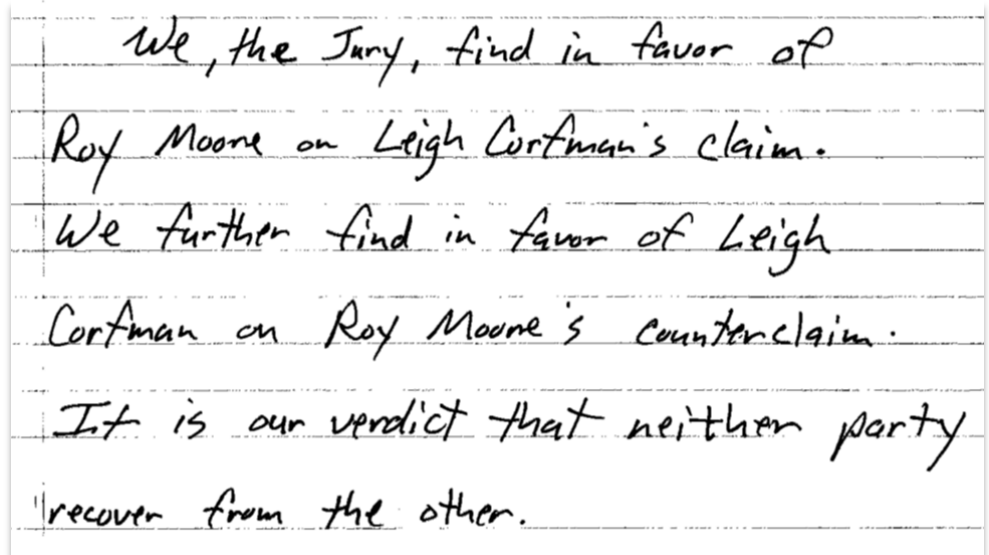 We, the Jury, find in favor of
Roy Moore on Leigh Corfman's claim.
We further find in favor of Leigh
Corfman on Roy Moore's counterclaim.
It is our verdict that neither party
recover from the other.